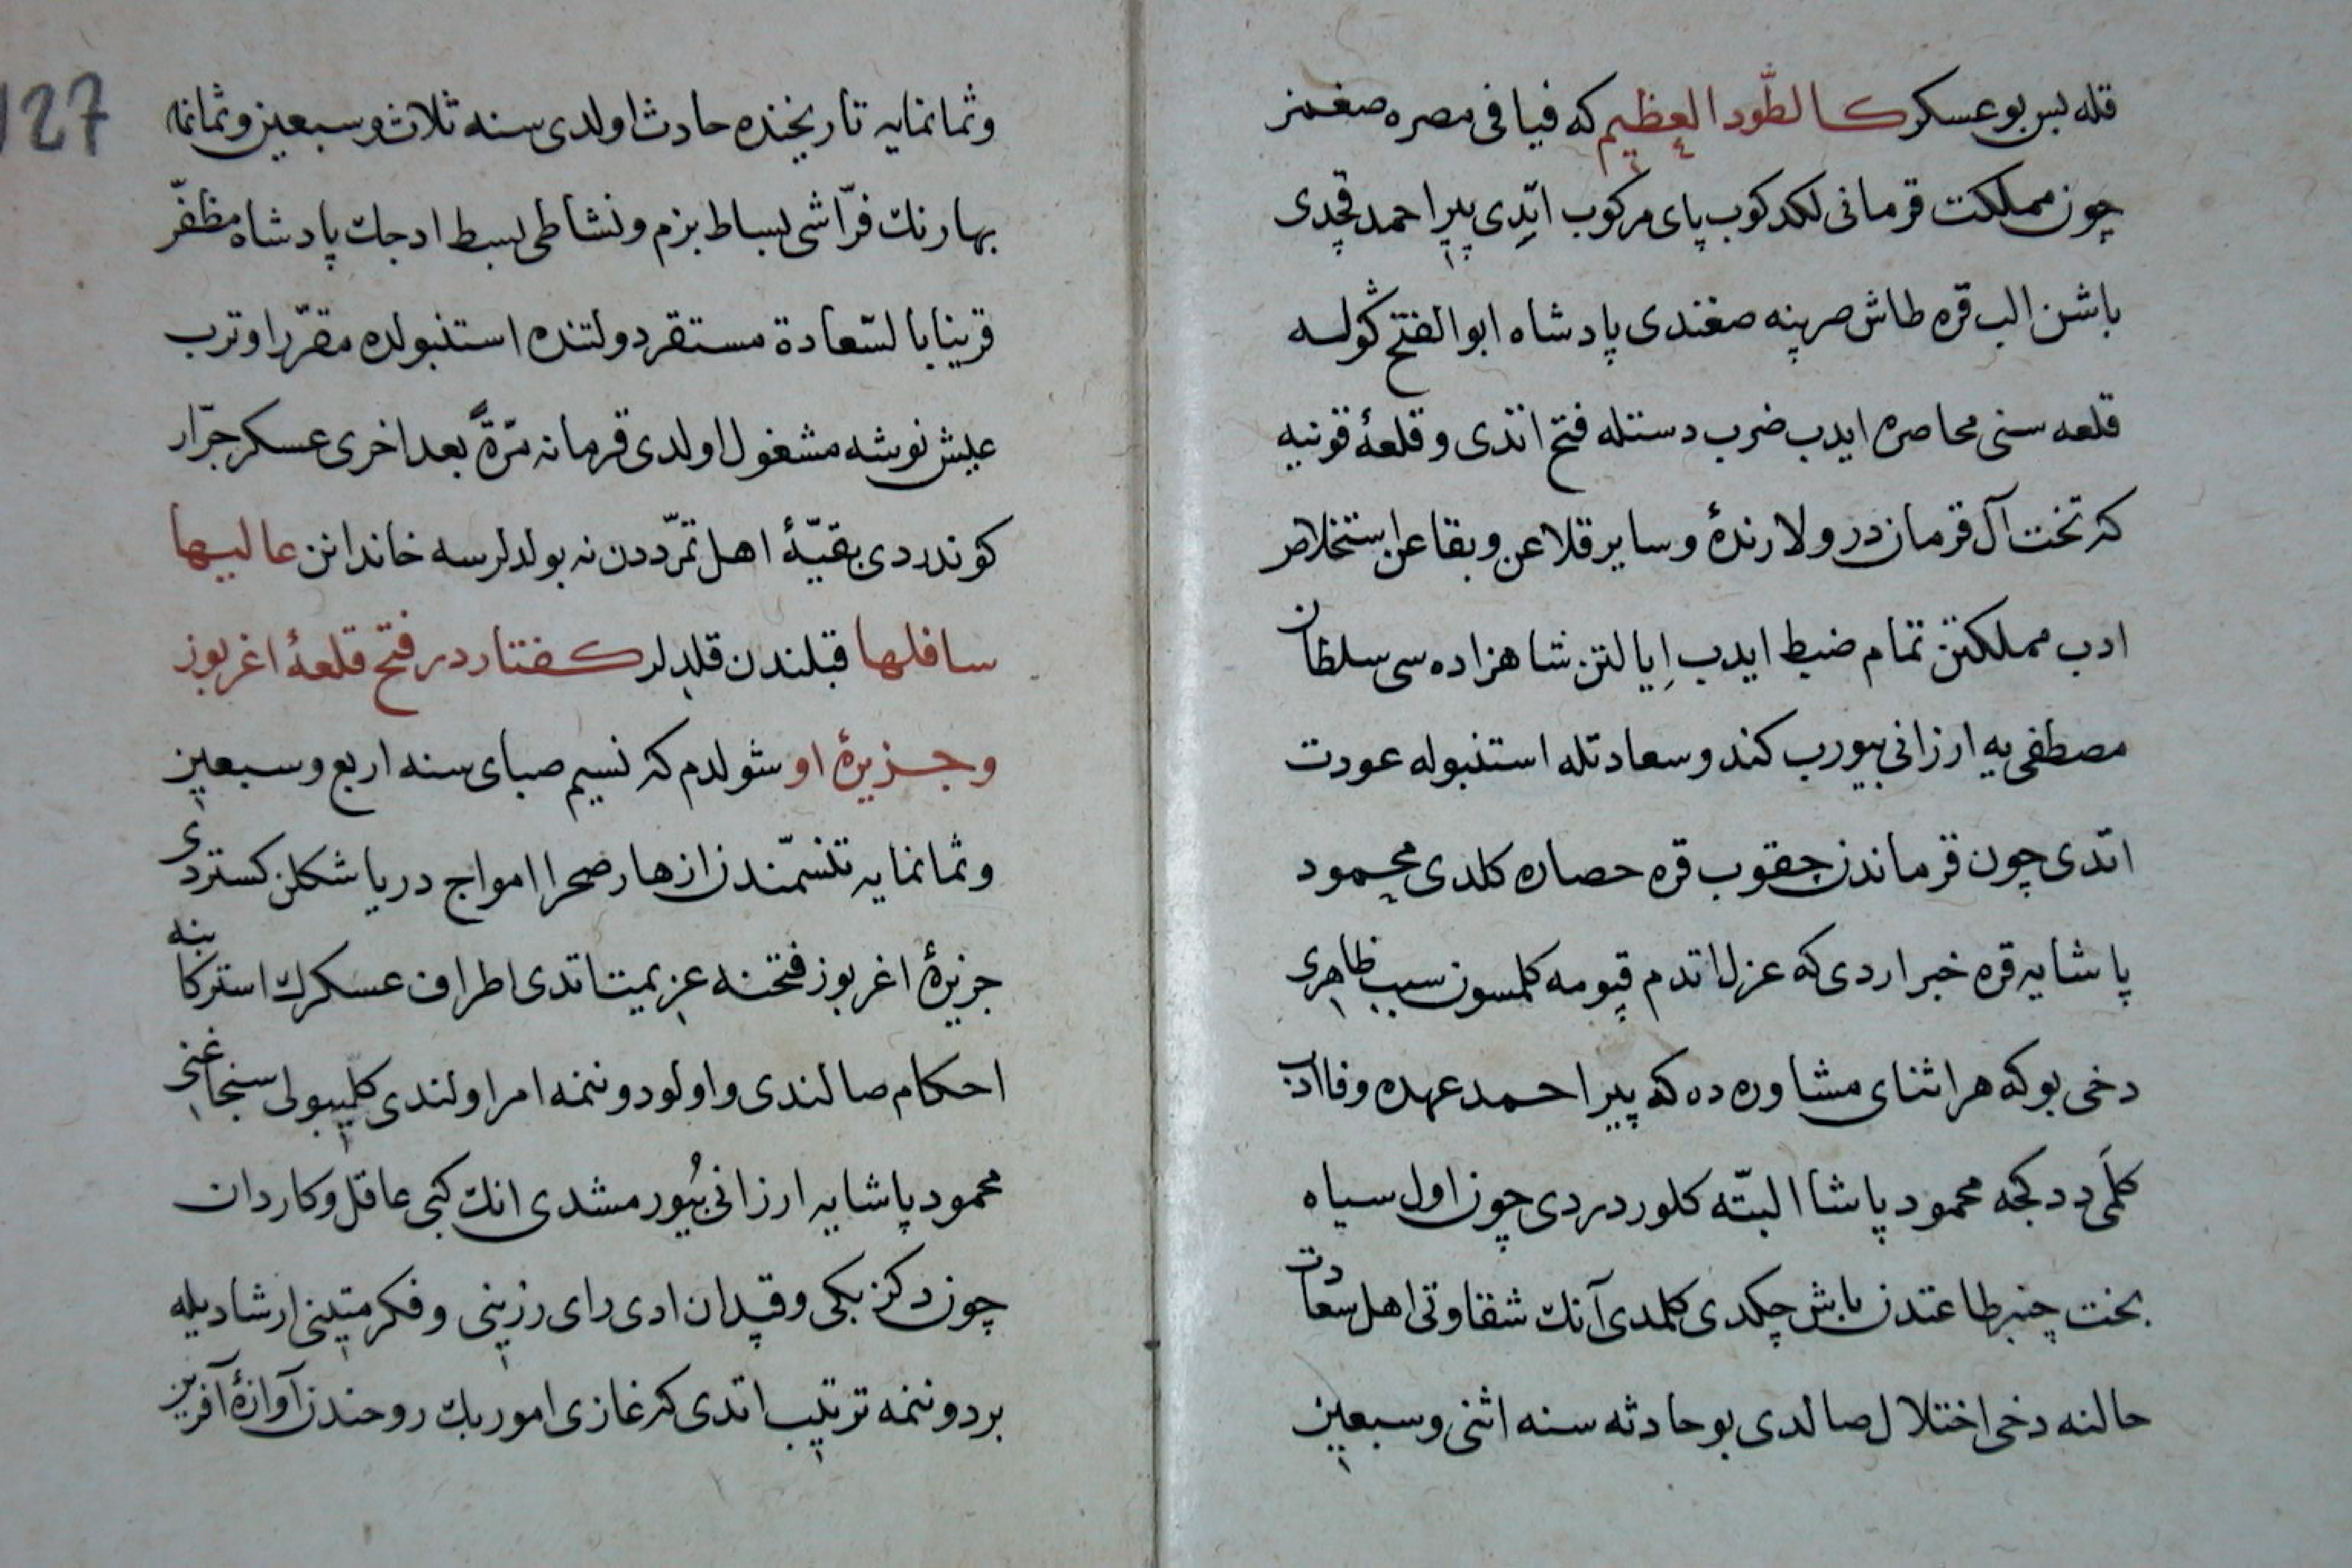 قله پس بو عسكر كالطّود العظيم كه فيافى مصره صغمز
چون مملكت قرمانى لكدكوب پاى مركوب ايّدى پير احمد قچدى
باشن الب قره طاش صرپنه صغندى پادشاه ابو الفتح كولسه
قلعه سنى محاصره ايدب ضرب دستله فتح اتدى و قلعهٔ قونيه
كه تخت آل قرماندر و لارندهٔ و ساير قلاعن و بقاعن استخلاص
ادب مملكتن تمام ضبط ايدب اِيالتن شاهزاده سى سلطان
مصطفى يه ارزانى بيورب كندو سعادتله استنبوله عودت
اتدى چون قرماندن چقوب قره حصاره كلدى محمود
پاشايه قره خبر اردى كه عزل اتدم قپومه كلمسون سبب ظاهرى
دخى بو كه هر اثناى مشاوره ده كه پير احمد عهده وفا ادب
كلمَى ددكجه محمود پاشا البتّه كلور دردى چون اول سياه
بخت چنبر طاعتدن باش چكدى كلمدى آنك شقاوتى اهل سعادت
حالنه دخى اختلال صالدى بو حادثه سنه اثنى و سبعين
127
و ثمانمايه تاريخنده حادث اولدى سنه ثلاث و سبعين و ثمانمايه
بهارنك فرّاشى بساط بزم و نشاطى بسط ادجك پادشاه مظفّر
قرين بالسّعادة مستقر دولتنده استنبولده مقرّر اوترب
عيش نوشه مشغول اولدى قرمانه مرّةً بعد اخرى عسكر جرّار
كوندردى بقيّهٔ اهل تمرّددن نه بولدلرسه خاندانن عاليها
سافلها قبلندن قلدلر كفتار در فتح قلعهٔ اغربوز
و جزيرهٔ او شولدم كه نسيم صباى سنه اربع و سبعين
و ثمانمايه تنسّمندن ازهار صحرا امواج دريا شكلن كستردى
جزيرهٔ اغربوز فتحنه عزيمت اتدى اطراف عسكرك استركابنه
احكام صالندى و اولو دوننمه امر اولندى كليبولى سنجاغنى
محمود پاشايه ارزانى بيُورمشدى انك كبى عاقل و كاردان
چون دكز بكى و قپدان ادى راى رزينى و فكر متينى ارشاديله
بر دوننمه ترتيب اتدى كه غازى امور بك روحندن آوازهٔ آفرين